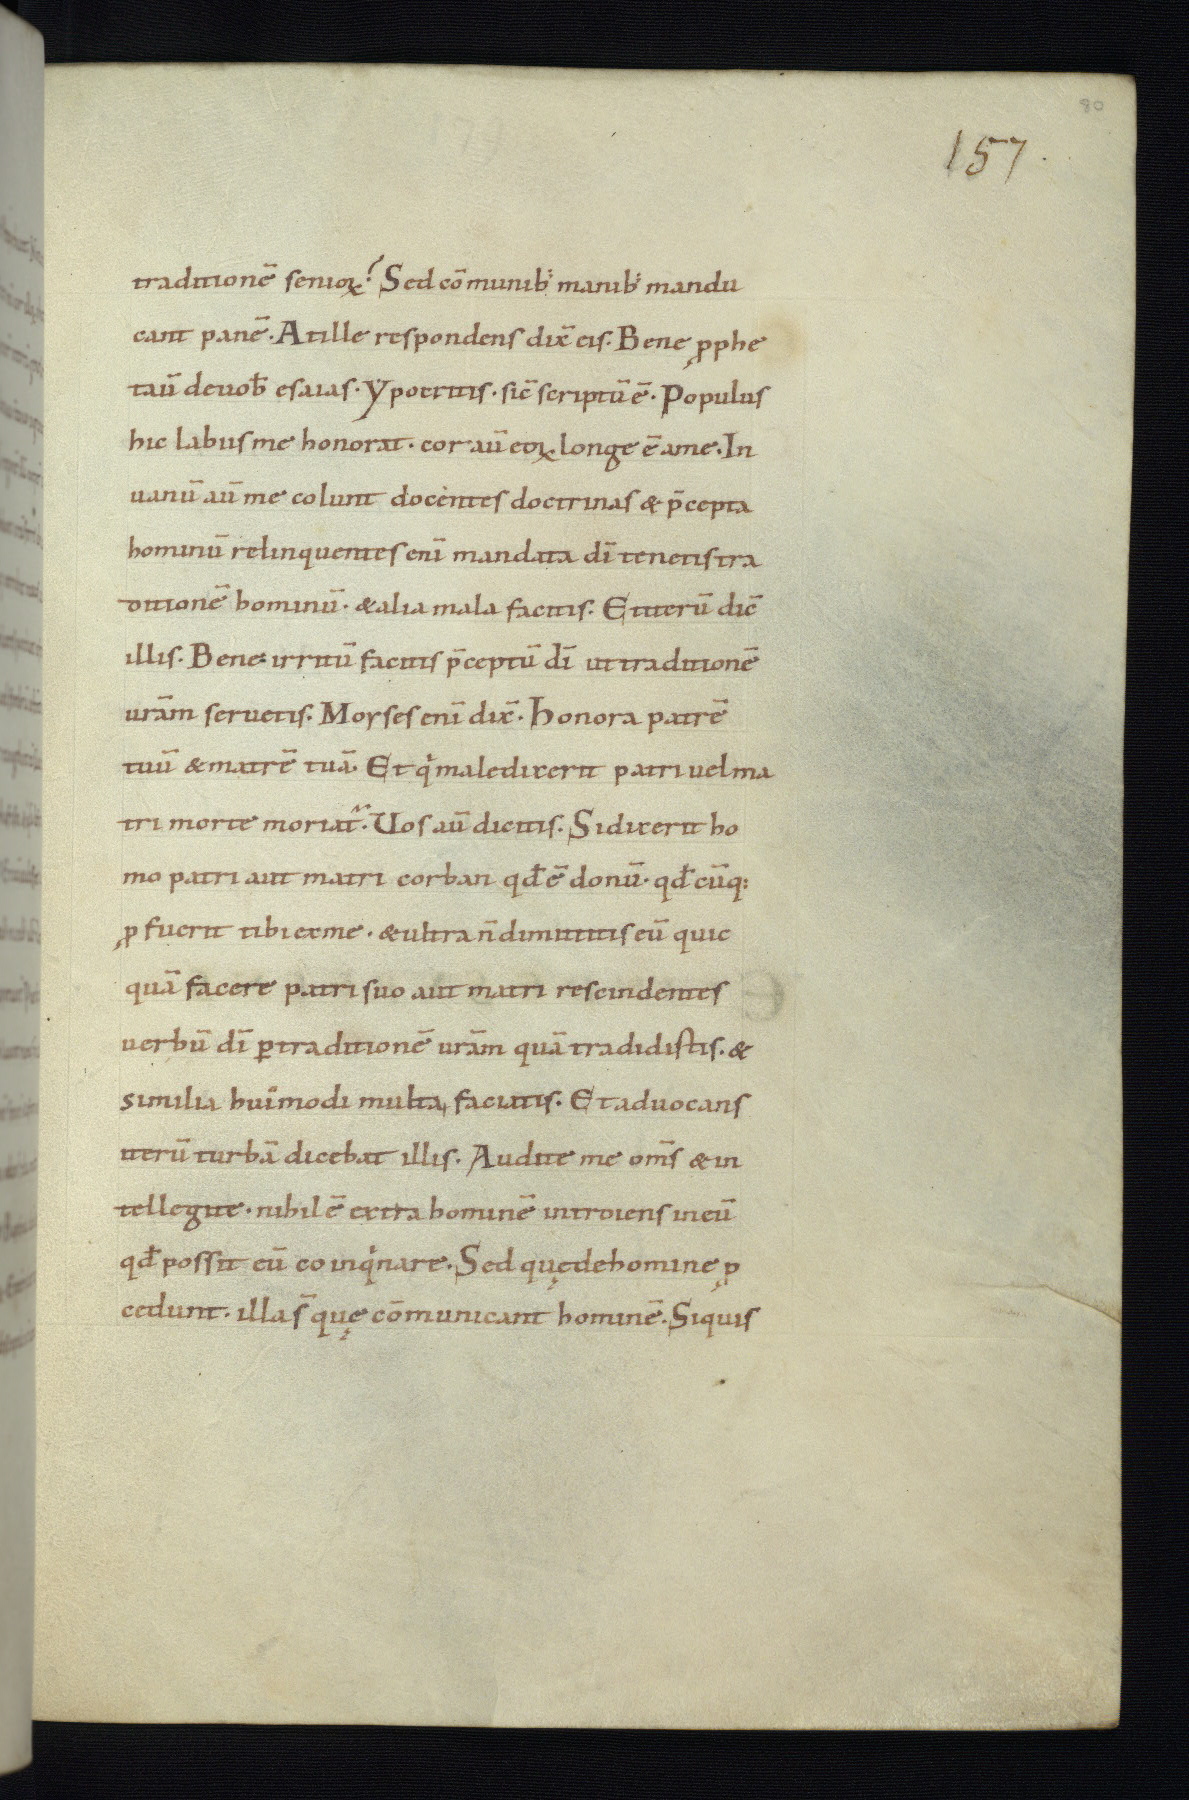 80
157.
traditionē senioꝝ? Sed cōmunib; manib; mandu
cant panē. At ille respondens dix̄ eis. Bene ꝓphe
tau̅ de uob̅ esaias. Ypocritis. sic̄ scriptū ē. Populus
hic labiis me honorat. cor au̅ eoꝝ longe ē a me. In
uanū au̅ me colunt docentes doctrinas & p̄cepta
hominū relinquentes eni̅ mandata di̅ tenetis tra
ditionē hominū. & alia mala facitis. Et iterū dic̄
illis. Bene irritū facitis p̄ceptū di̅ ut traditionē
ur̅am seruetis. Moyses eni̅ dix̄. Honora patrē
tuū & matrē tuā. Et qͥ maledixerit patri uel ma
tri morte moriat᷑. Uos au̅ dicitis. Si dixerit ho
mo patri aut matri corban qd̅ ē donū. qd̅ cūq;
ꝓfuerit tibi ex me. & ultra n̄ dimittitis eū quic
quā facere patri suo aut matri rescindentes
uerbū di̅ ꝑ traditionē ur̅am quā tradidistis. &
similia huiͥmodi multa facitis. Et aduocans
iterū turbā dicebat illis. Audite me om̅s & in
tellegite. nihil ē extra hominē introiens in eū
qd̅ possit eū coinqͥnare. Sed quę de homine ꝓ
cedunt. illa s̄ quę cōmunicant hominē. Siquis